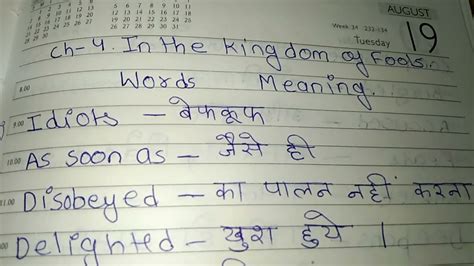 AUGUST
Week 34 232-134
Tuesday
19
Ch-4. In the kingdom of Fools.
Words Meaning.
8.00
9.00 Idiots – बेफकूफ
10.00 As soon as – जैसे ही
11.00 Disobeyed – का पालन नहीं करना
Delighted – खुश हुये ।